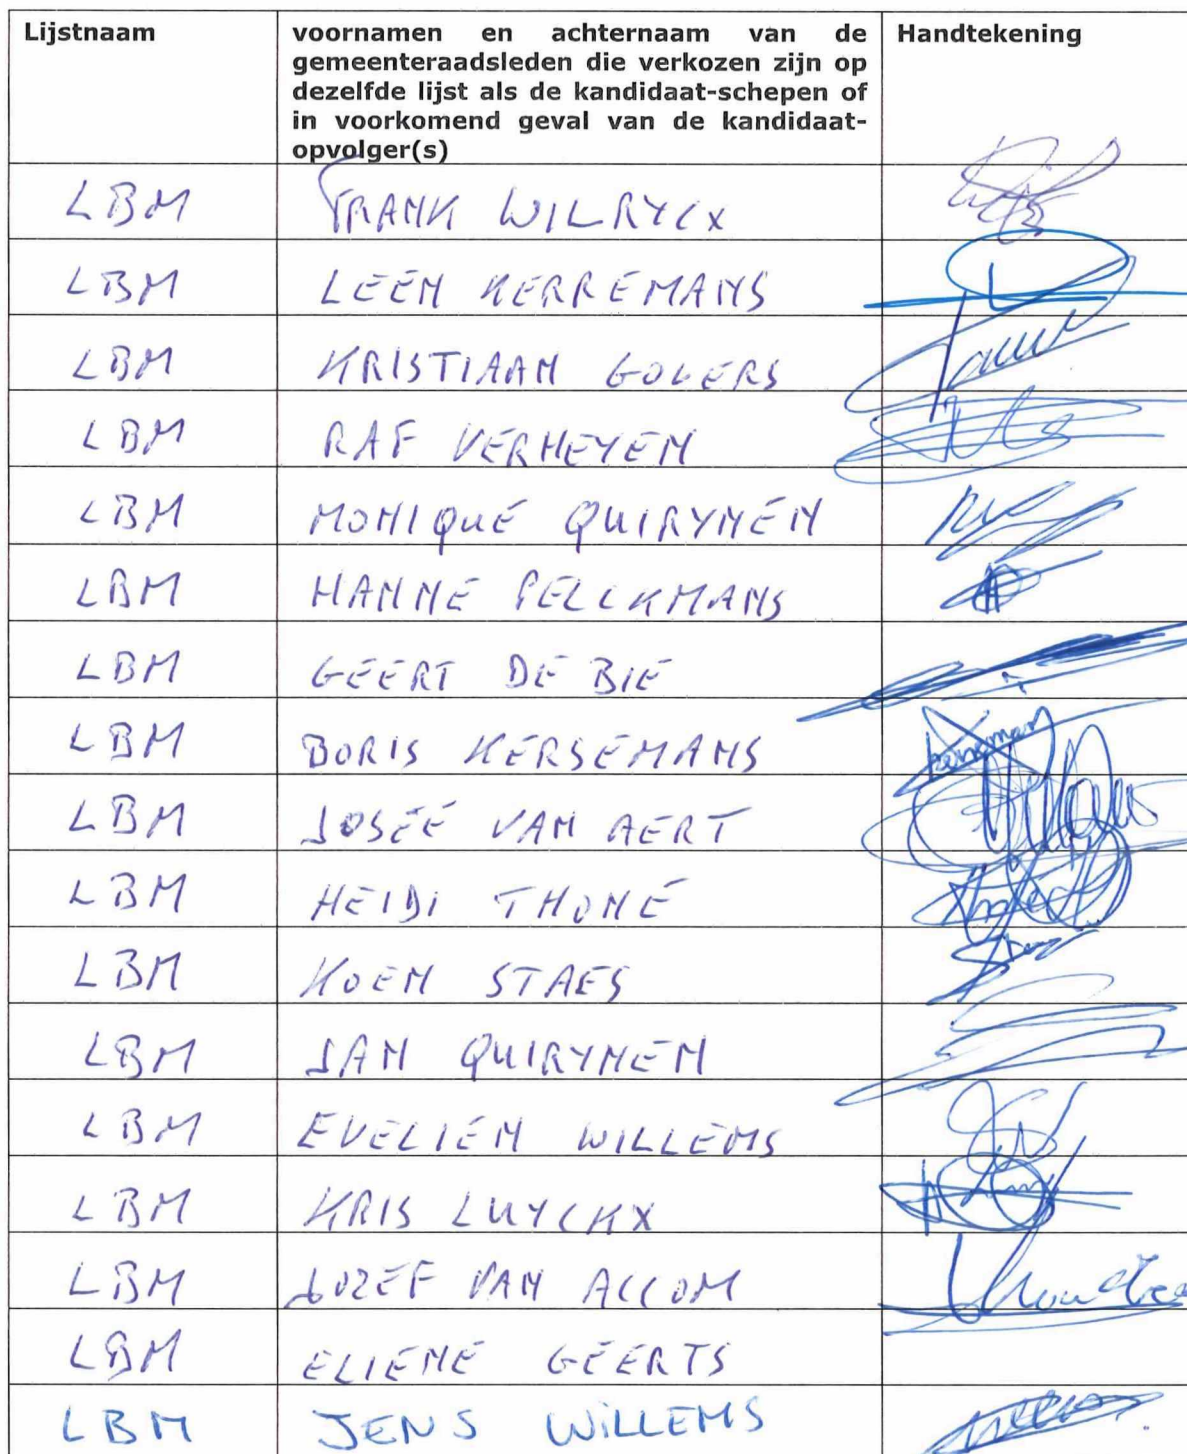 Lijstnaam
voornamen en achternaam van de
gemeenteraadsleden die verkozen zijn op
dezelfde lijst als de kandidaat-schepen of
in voorkomend geval van de kandidaat-
opvolger(s)
Handtekening
LBM FRANK WILRYCX
LBM LEEN KERREMANS
LBM KRISTIAAN GOVERS
LBM RAF VERHEYEN
LBM MONIQUE QUIRYNEN
LBM HANNE PELCKMANS
LBM GEERT DE BIE
LBM BORIS KERSEMANS
LBM JOSÉE VAN AERT
LBM HEIDI THONÉ
LBM KOEN STAES
LBM JAN QUIRYNEN
LBM EVELIEN WILLEMS
LBM KRIS LUYCKX
LBM JOZEF VAN ACCOM
LBM ELIENE GEERTS
LBM JENS WILLEMS